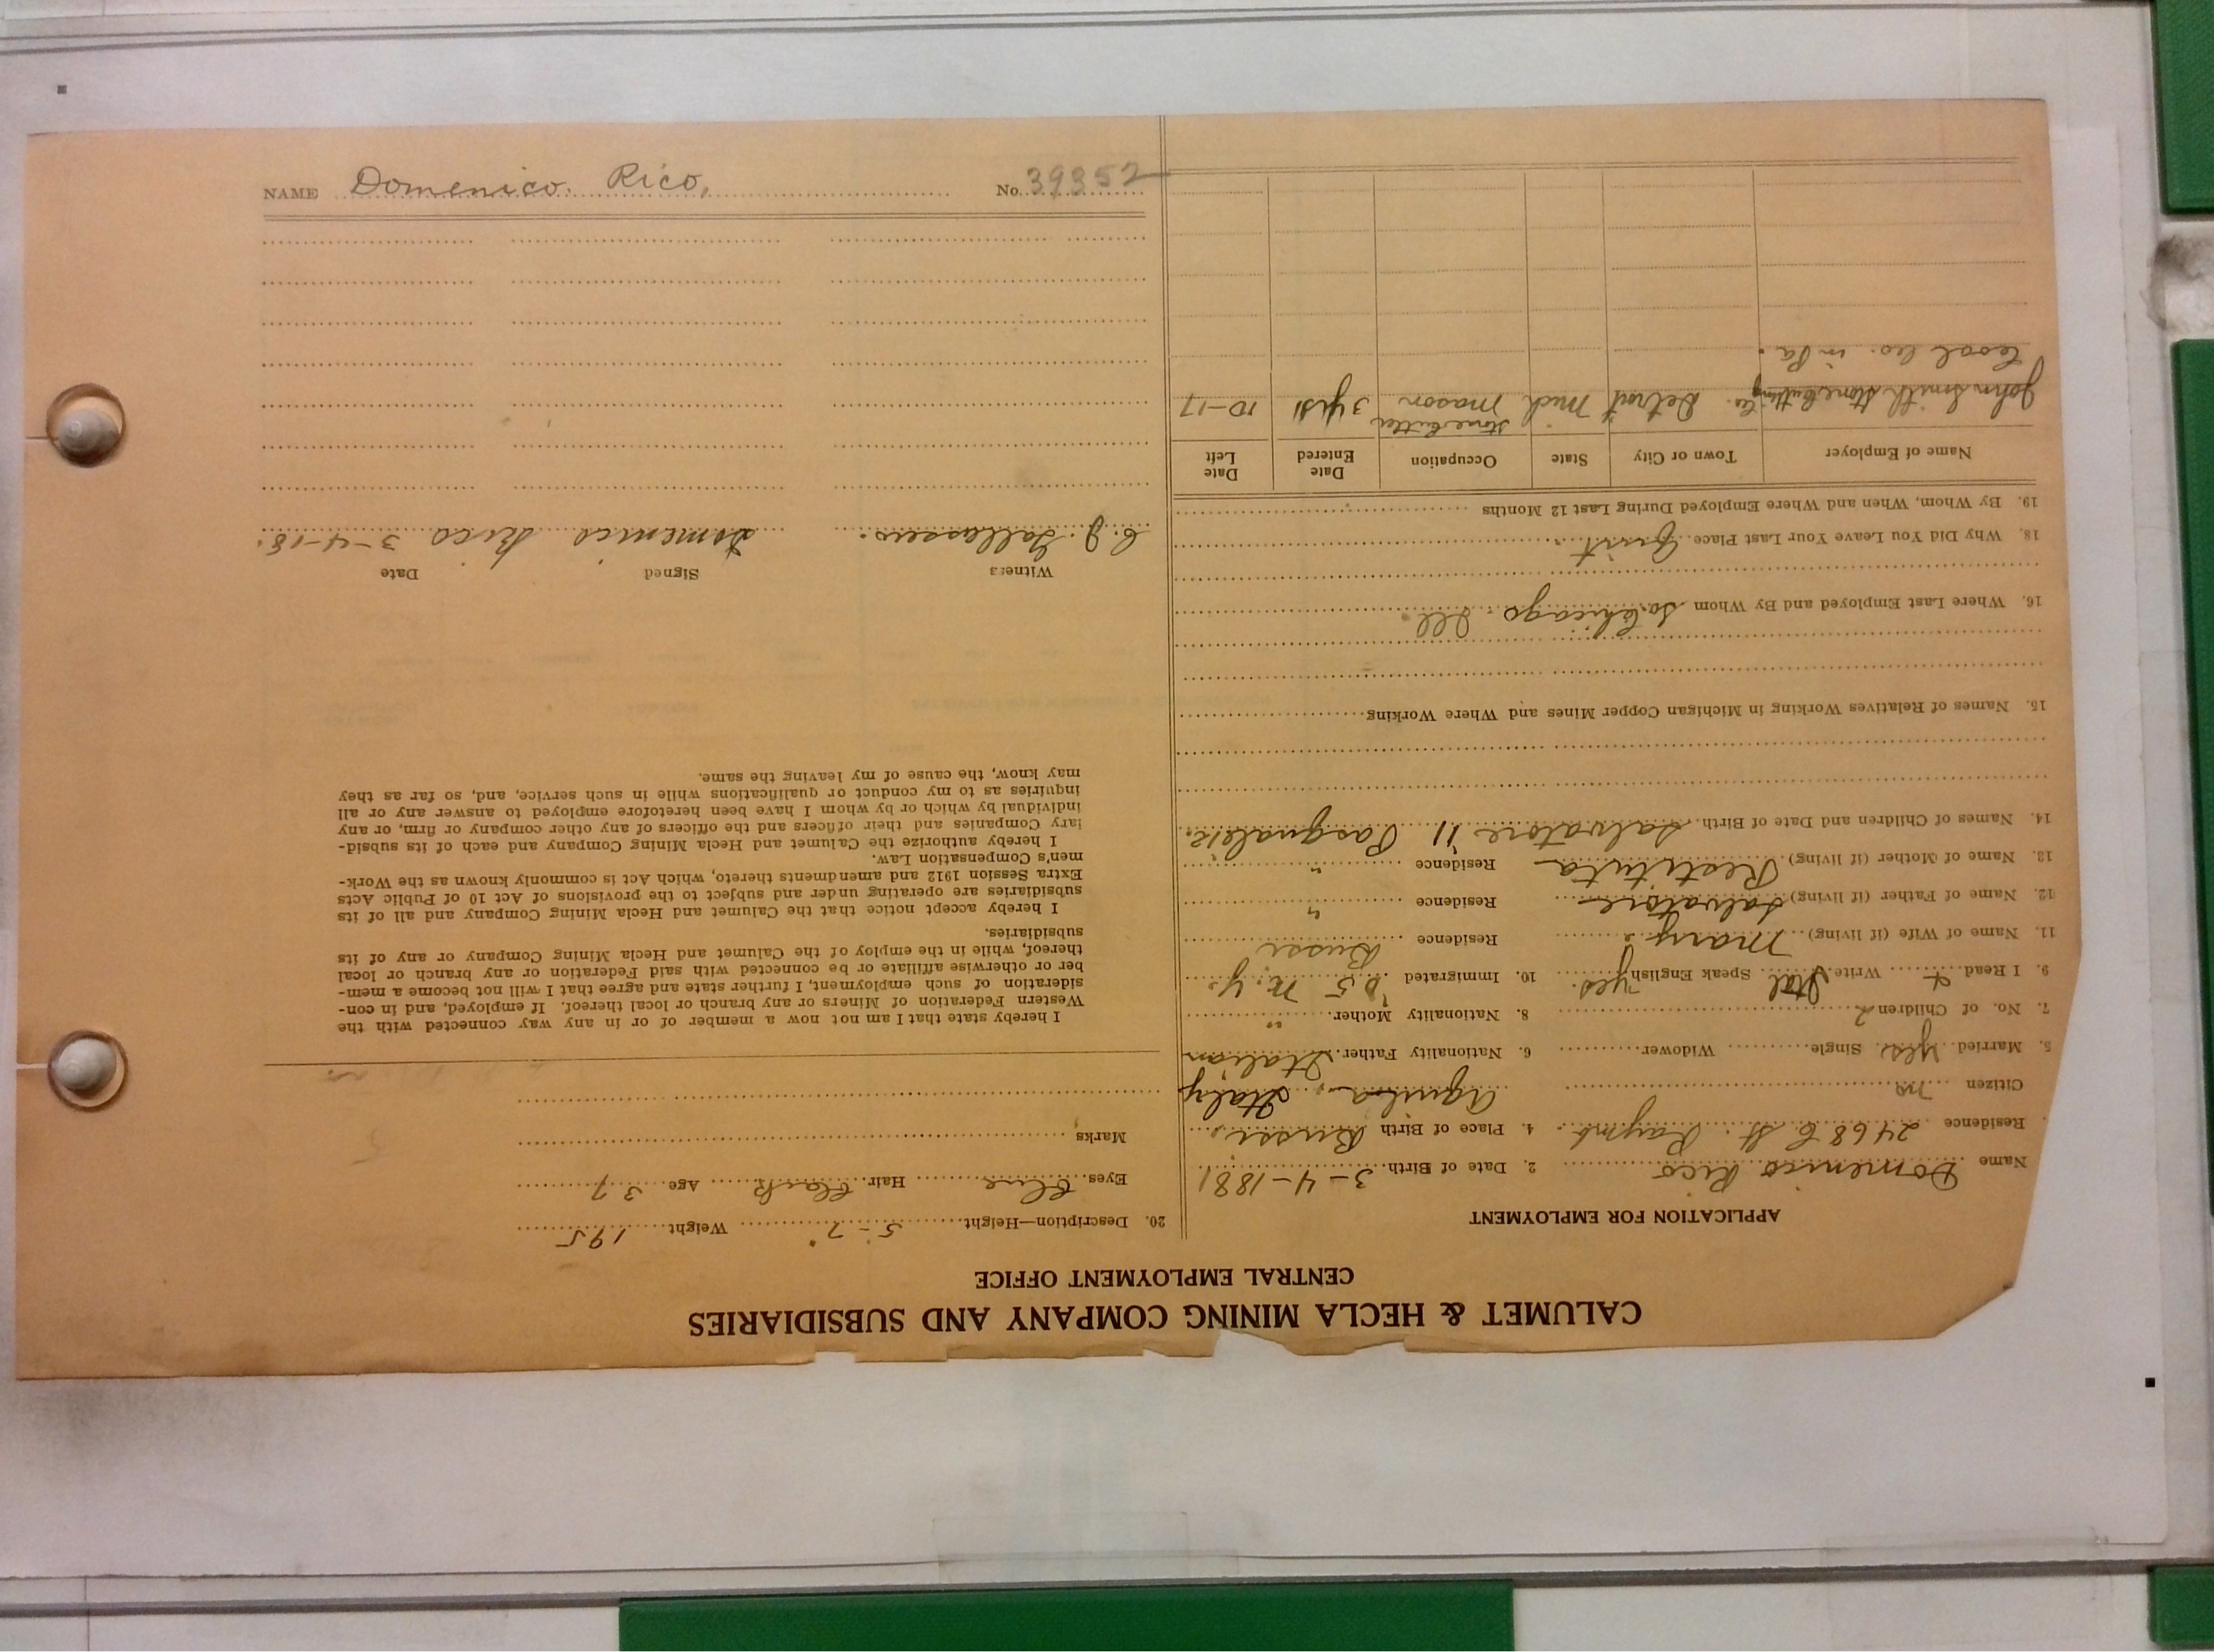 CALUMET & HECLA MINING COMPANY AND SUBSIDIARIES
CENTRAL EMPLOYMENT OFFICE
APPLICATION FOR EMPLOYMENT
Name Domenico Rico 2. Date of Birth 3-4-1881
Residence 2468 C St. Raymb. 4. Place of Birth Bussi,
Citizen no Aquila, Italy
5. Married yes Single Widower 6. Nationality Father Italian
7. No. of Children 2 8. Nationality Mother "
9. I Read & Write Ital Speak English yes. 10. Immigrated '05 N.Y.
11. Name of Wife (if living) Mary Residence Bussi
12. Name of Father (if living) Salvatore Residence "
13. Name of Mother (if living) Restituta Residence "
14. Names of Children and Date of Birth Salvatore '11 Pasquale 12.
15. Names of Relatives Working in Michigan Copper Mines and Where Working
16. Where Last Employed and By Whom So. Chicago. Ill.
18. Why Did You Leave Your Last Place Quit
19. By Whom, When and Where Employed During Last 12 Months
Name of Employer Town or City State Occupation Date Entered Date Left
John Smith Stone Cutting Co. Detroit Mich Stone Cutter mason 3 yrs 10-17
Coal Co. in Pa.
20. Description—Height 5-7" Weight 195
Eyes blue Hair black Age 37
Marks
I hereby state that I am not now a member of or in any way connected with the
Western Federation of Miners or any branch or local thereof. If employed, and in con-
sideration of such employment, I further state and agree that I will not become a mem-
ber or otherwise affiliate or be connected with said Federation or any branch or local
thereof, while in the employ of the Calumet and Hecla Mining Company or any of its
subsidiaries.
I hereby accept notice that the Calumet and Hecla Mining Company and all of its
subsidiaries are operating under and subject to the provisions of Act 10 of Public Acts
Extra Session 1912 and amendments thereto, which Act is commonly known as the Work-
men's Compensation Law.
I hereby authorize the Calumet and Hecla Mining Company and each of its subsid-
iary Companies and their officers and the officers of any other company or firm, or any
individual by which or by whom I have been heretofore employed to answer any or all
inquiries as to my conduct or qualifications while in such service, and, so far as they
may know, the cause of my leaving the same.
Witness Signed Date
C. J. Domenico Rico 3-4-18.
NAME Domenico. Rico, No. 39352